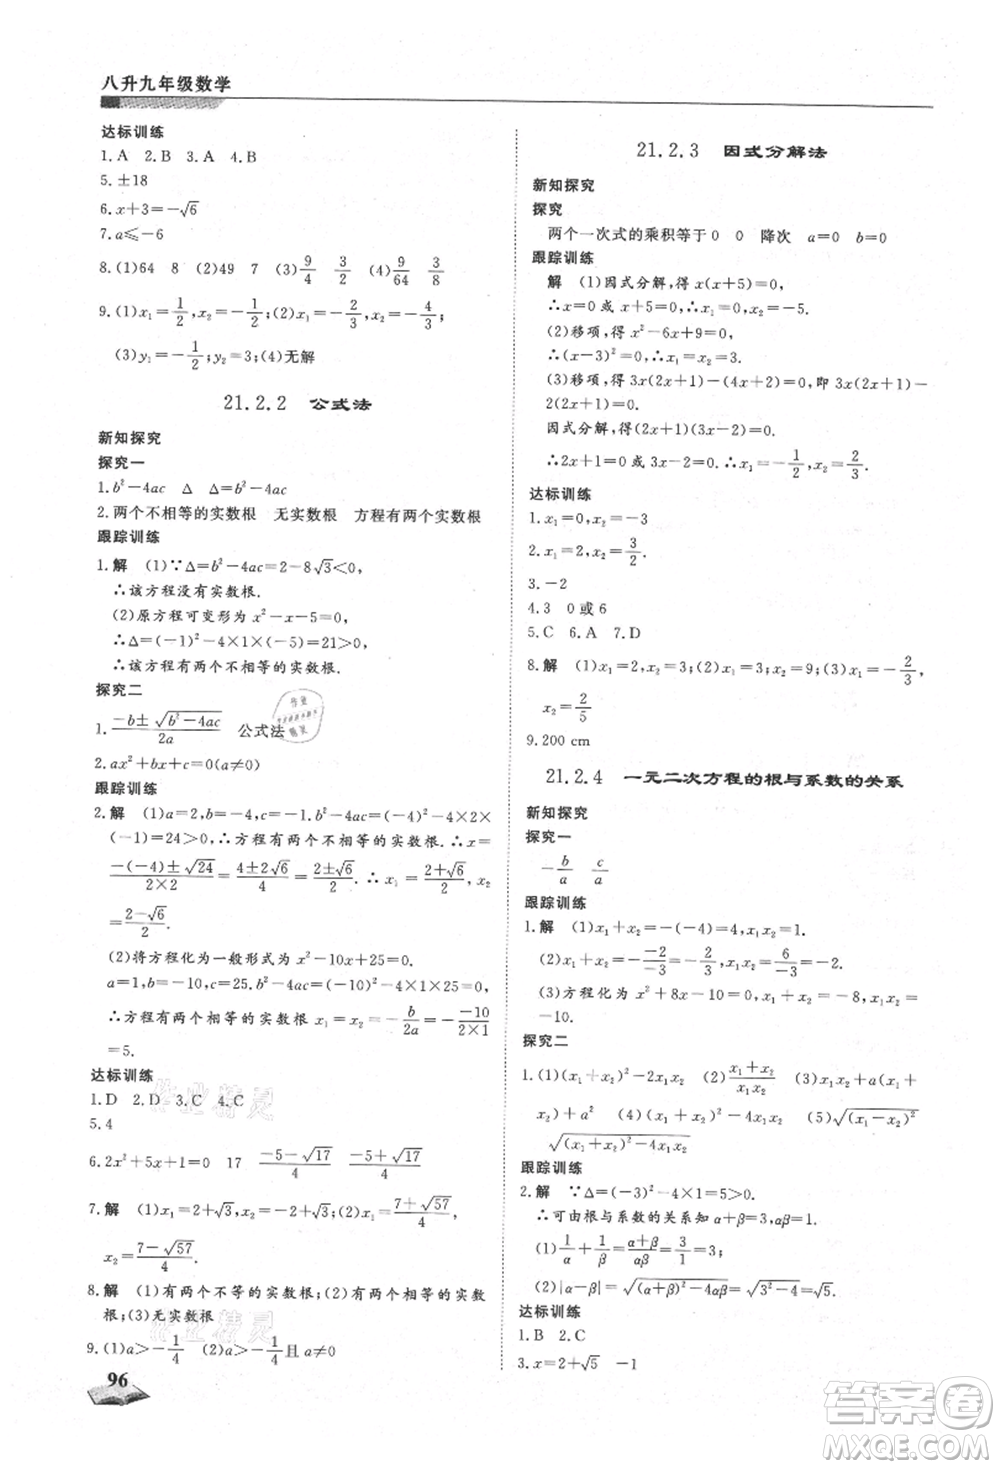 八升九年级数学
达标训练
1. A  2. B  3. A  4. B
5. ±18
6. x+3=-√6
7. a≤-6
8. (1)64  8  (2)49  7  (3)9/4  3/2  (4)9/64  3/8
9. (1)x₁=1/2, x₂=-1/2;(2)x₁=-3/2, x₂=-4/3;
(3)y₁=-1/2;y₂=3;(4)无解
21.2.2  公式法
新知探究
探究一
1. b²-4ac  Δ  Δ=b²-4ac
2. 两个不相等的实数根  无实数根  方程有两个实数根
跟踪训练
1. 解  (1)∵Δ=b²-4ac=2-8√3<0,
∴该方程没有实数根.
(2)原方程可化为 x²-x-5=0,
∴Δ=(-1)²-4×1×(-5)=21>0,
∴该方程有两个不相等的实数根.
探究二
1. (-b±√(b²-4ac))/2a  公式法
2. ax²+bx+c=0(a≠0)
跟踪训练
2. 解  (1)a=2,b=-4,c=-1. b²-4ac=(-4)²-4×2×
(-1)=24>0,∴方程有两个不相等的实数根. ∴x=
(-(-4)±√24)/(2×2)=(4±2√6)/4=(2±√6)/2. ∴x₁=(2+√6)/2, x₂
=(2-√6)/2.
(2)将方程化为一般形式 x²-10x+25=0.
a=1,b=-10,c=25. b²-4ac=(-10)²-4×1×25=0,
∴方程有两个相等的实数根 x₁=x₂=-b/2a=-(-10)/(2×1)
=5.
达标训练
1. D  2. D  3. C  4. C
5. 4
6. 2x²+5x+1=0  17  (-5-√17)/4  (-5+√17)/4
7. 解  (1)x₁=2+√3, x₂=2-√3;(2)x₁=(7+√57)/4,
x₂=(7-√57)/4
8. 解  (1)有两个不等的实数根;(2)有两个相等的实数
根;(3)无实数根
9. (1)a>-1/4  (2)a>-1/4且 a≠0
96
21.2.3  因式分解法
新知探究
探究
两个一次式的乘积等于0  0  降次  a=0  b=0
跟踪训练
解  (1)因式分解,得 x(x+5)=0,
∴x=0或 x+5=0,∴x₁=0,x₂=-5.
(2)移项,得 x²-6x+9=0,
∴(x-3)²=0.∴x₁=x₂=3.
(3)移项,得 3x(2x+1)-(4x+2)=0,即 3x(2x+1)-
2(2x+1)=0.
因式分解,得(2x+1)(3x-2)=0.
∴2x+1=0,3x-2=0.∴x₁=-1/2, x₂=2/3.
达标训练
1. x₁=0, x₂=-3
2. x₁=2, x₂=3/2.
3. -2
4. 3  0或6
5. C  6. A  7. D
8. 解  (1)x₁=2,x₂=3;(2)x₁=3;x₂=9;(3)x₁=-2/3,
x₂=2/5
9. 200 cm
21.2.4  一元二次方程的根与系数的关系
新知探究
探究一
-b/a  c/a
跟踪训练
1. 解  (1)x₁+x₂=-(-4)=4, x₁x₂=1.
(2)x₁+x₂=-(-2)/(-3)=-2/3, x₁x₂=6/(-3)=-2.
(3)方程化为 x²+8x-10=0, x₁+x₂=-8, x₁x₂=
-10.
探究二
1. (1)(x₁+x₂)²-2x₁x₂  (2)(x₁+x₂)/(x₁x₂)  (3)x₁x₂+a(x₁+
x₂)+a²  (4)(x₁+x₂)²-4x₁x₂  (5)√((x₁-x₂)²)
√((x₁+x₂)²-4x₁x₂)
跟踪训练
2. 解  ∵Δ=(-3)²-4×1×1=5>0,
∴可由根与系数的关系知 α+β=3,αβ=1.
(1)1/α+1/β=(α+β)/αβ=3/1=3;
(2)|α-β|=√((α+β)²-4αβ)=√(3²-4)=√5.
达标训练
1. B  2. C
3. x=2+√5  -1
作业精灵
作业精灵
答案圈
MXQE.COM